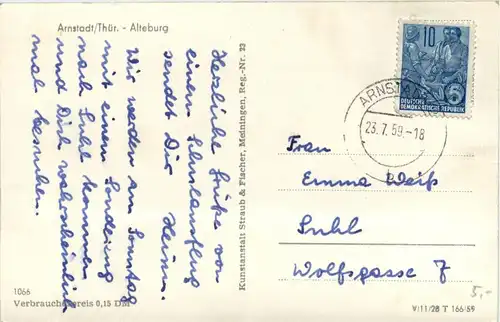 Arnstadt/Thür. - Alteburg
Herzliche Grüße von
einem Schulausflug
sendet Dir Heinz.
Wir werden am Sonntag
mit einem Sonderzug
nach Suhl kommen
und Dich wahrscheinlich
mal besuchen.
1066
Verbraucherpreis 0,15 DM
Kunstanstalt Straub & Fischer, Meiningen, Reg.-Nr. 23
10
DEUTSCHE
DEMOKRATISCHE REPUBLIK
ARNSTADT
23.7.59.-18
Frau
Emma Weiß
Suhl
Wolfsgasse 7
5,-
V/11/28 T 166/59